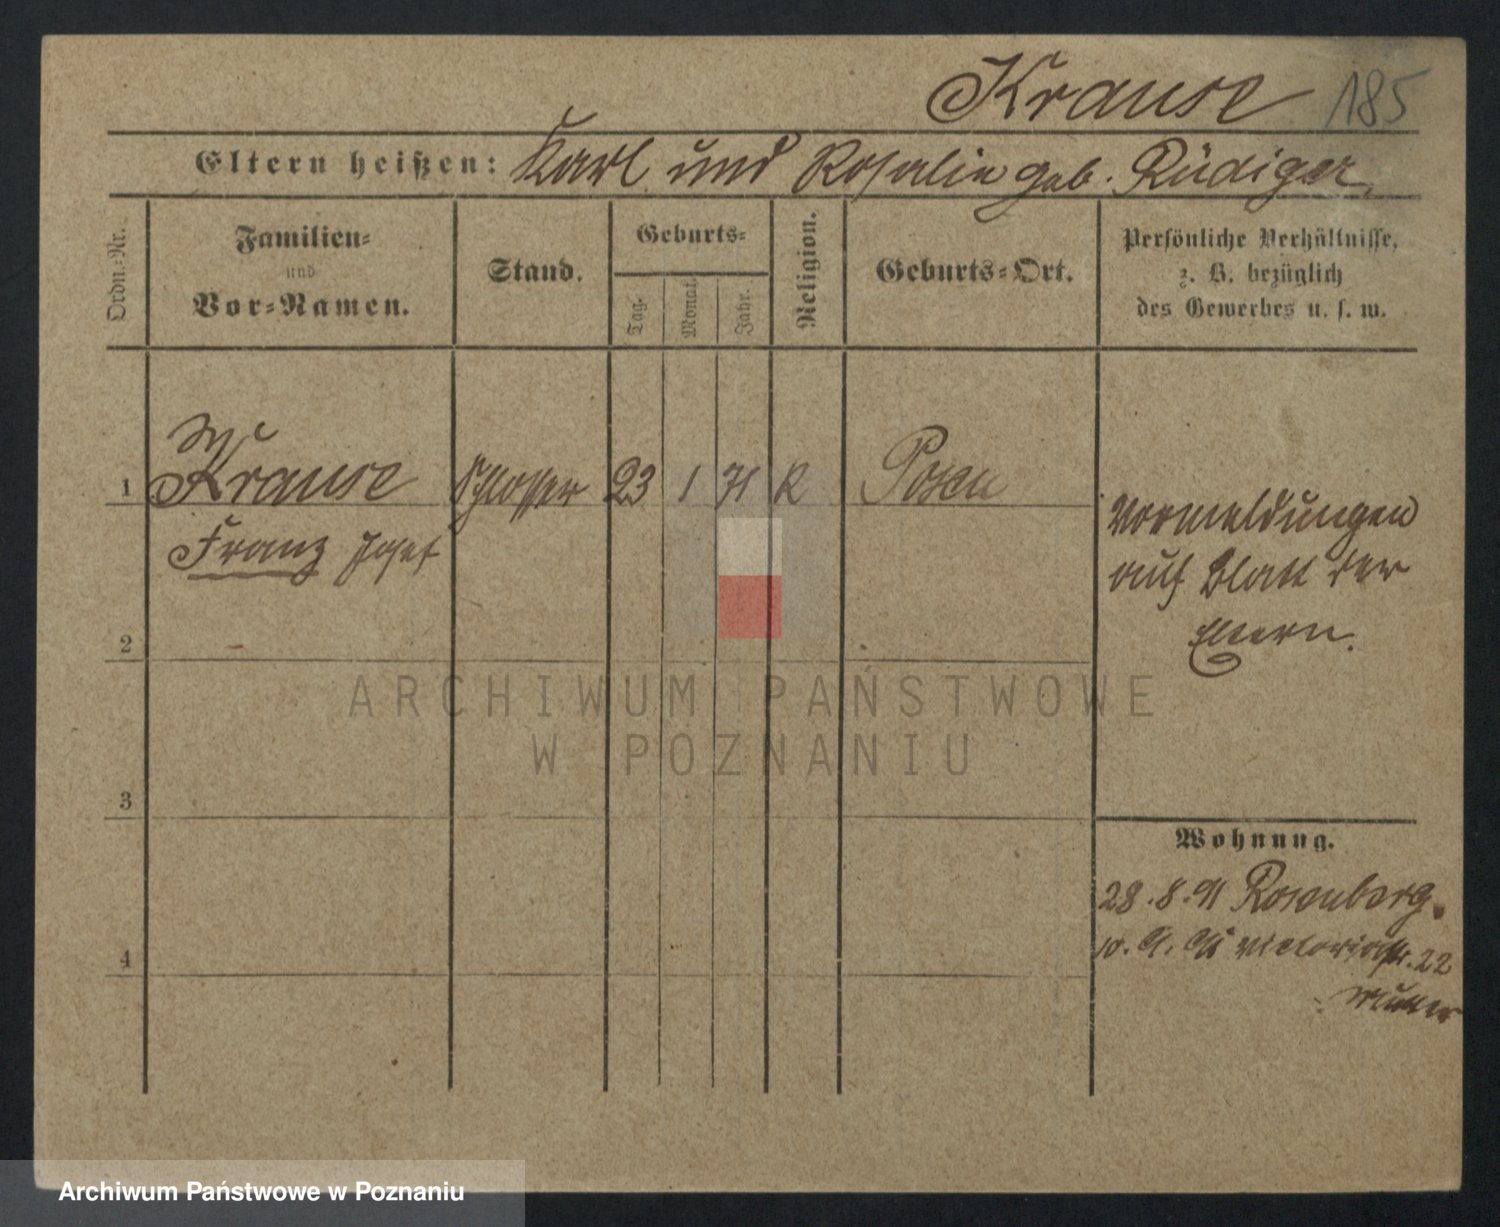 Krause 185
Eltern heißen: Karl und Rosalie geb. Rüdiger.
Ordn.-Nr.
Familien-
und
Vor-Namen.
Stand.
Geburts-
Tag.
Monat.
Jahr.
Religion.
Geburts-Ort.
Persönliche Verhältnisse,
z. B. bezüglich
des Gewerbes u. s. w.
1 Krause Schlosser 23 1 71 K Posen
Franz Josef
Vormeldungen
auf Blatt der
Eltern.
2
3
4
Wohnung.
28.8.91 Rosenberg.
Victoriastr. 22
Mutter
ARCHIWUM PAŃSTWOWE
W POZNANIU
Archiwum Państwowe w Poznaniu